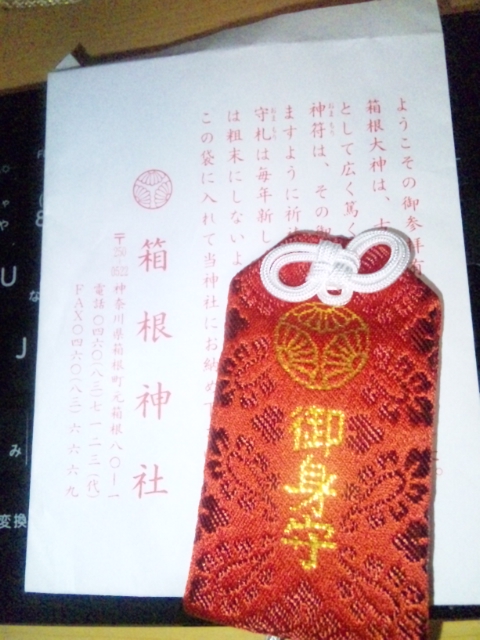 ようこその御参拝
箱根大神は、
として広く篤く
神符は、その御
ますように祈
守札は毎年新し
は粗末にしないよ
この袋に入れて当神社にお納め
箱根神社
神奈川県箱根町元箱根八〇ー一
電話〇四六〇(八三)七一二三(代)
FAX〇四六〇(八三)六六六九
御身守
U
な
J
み
変換